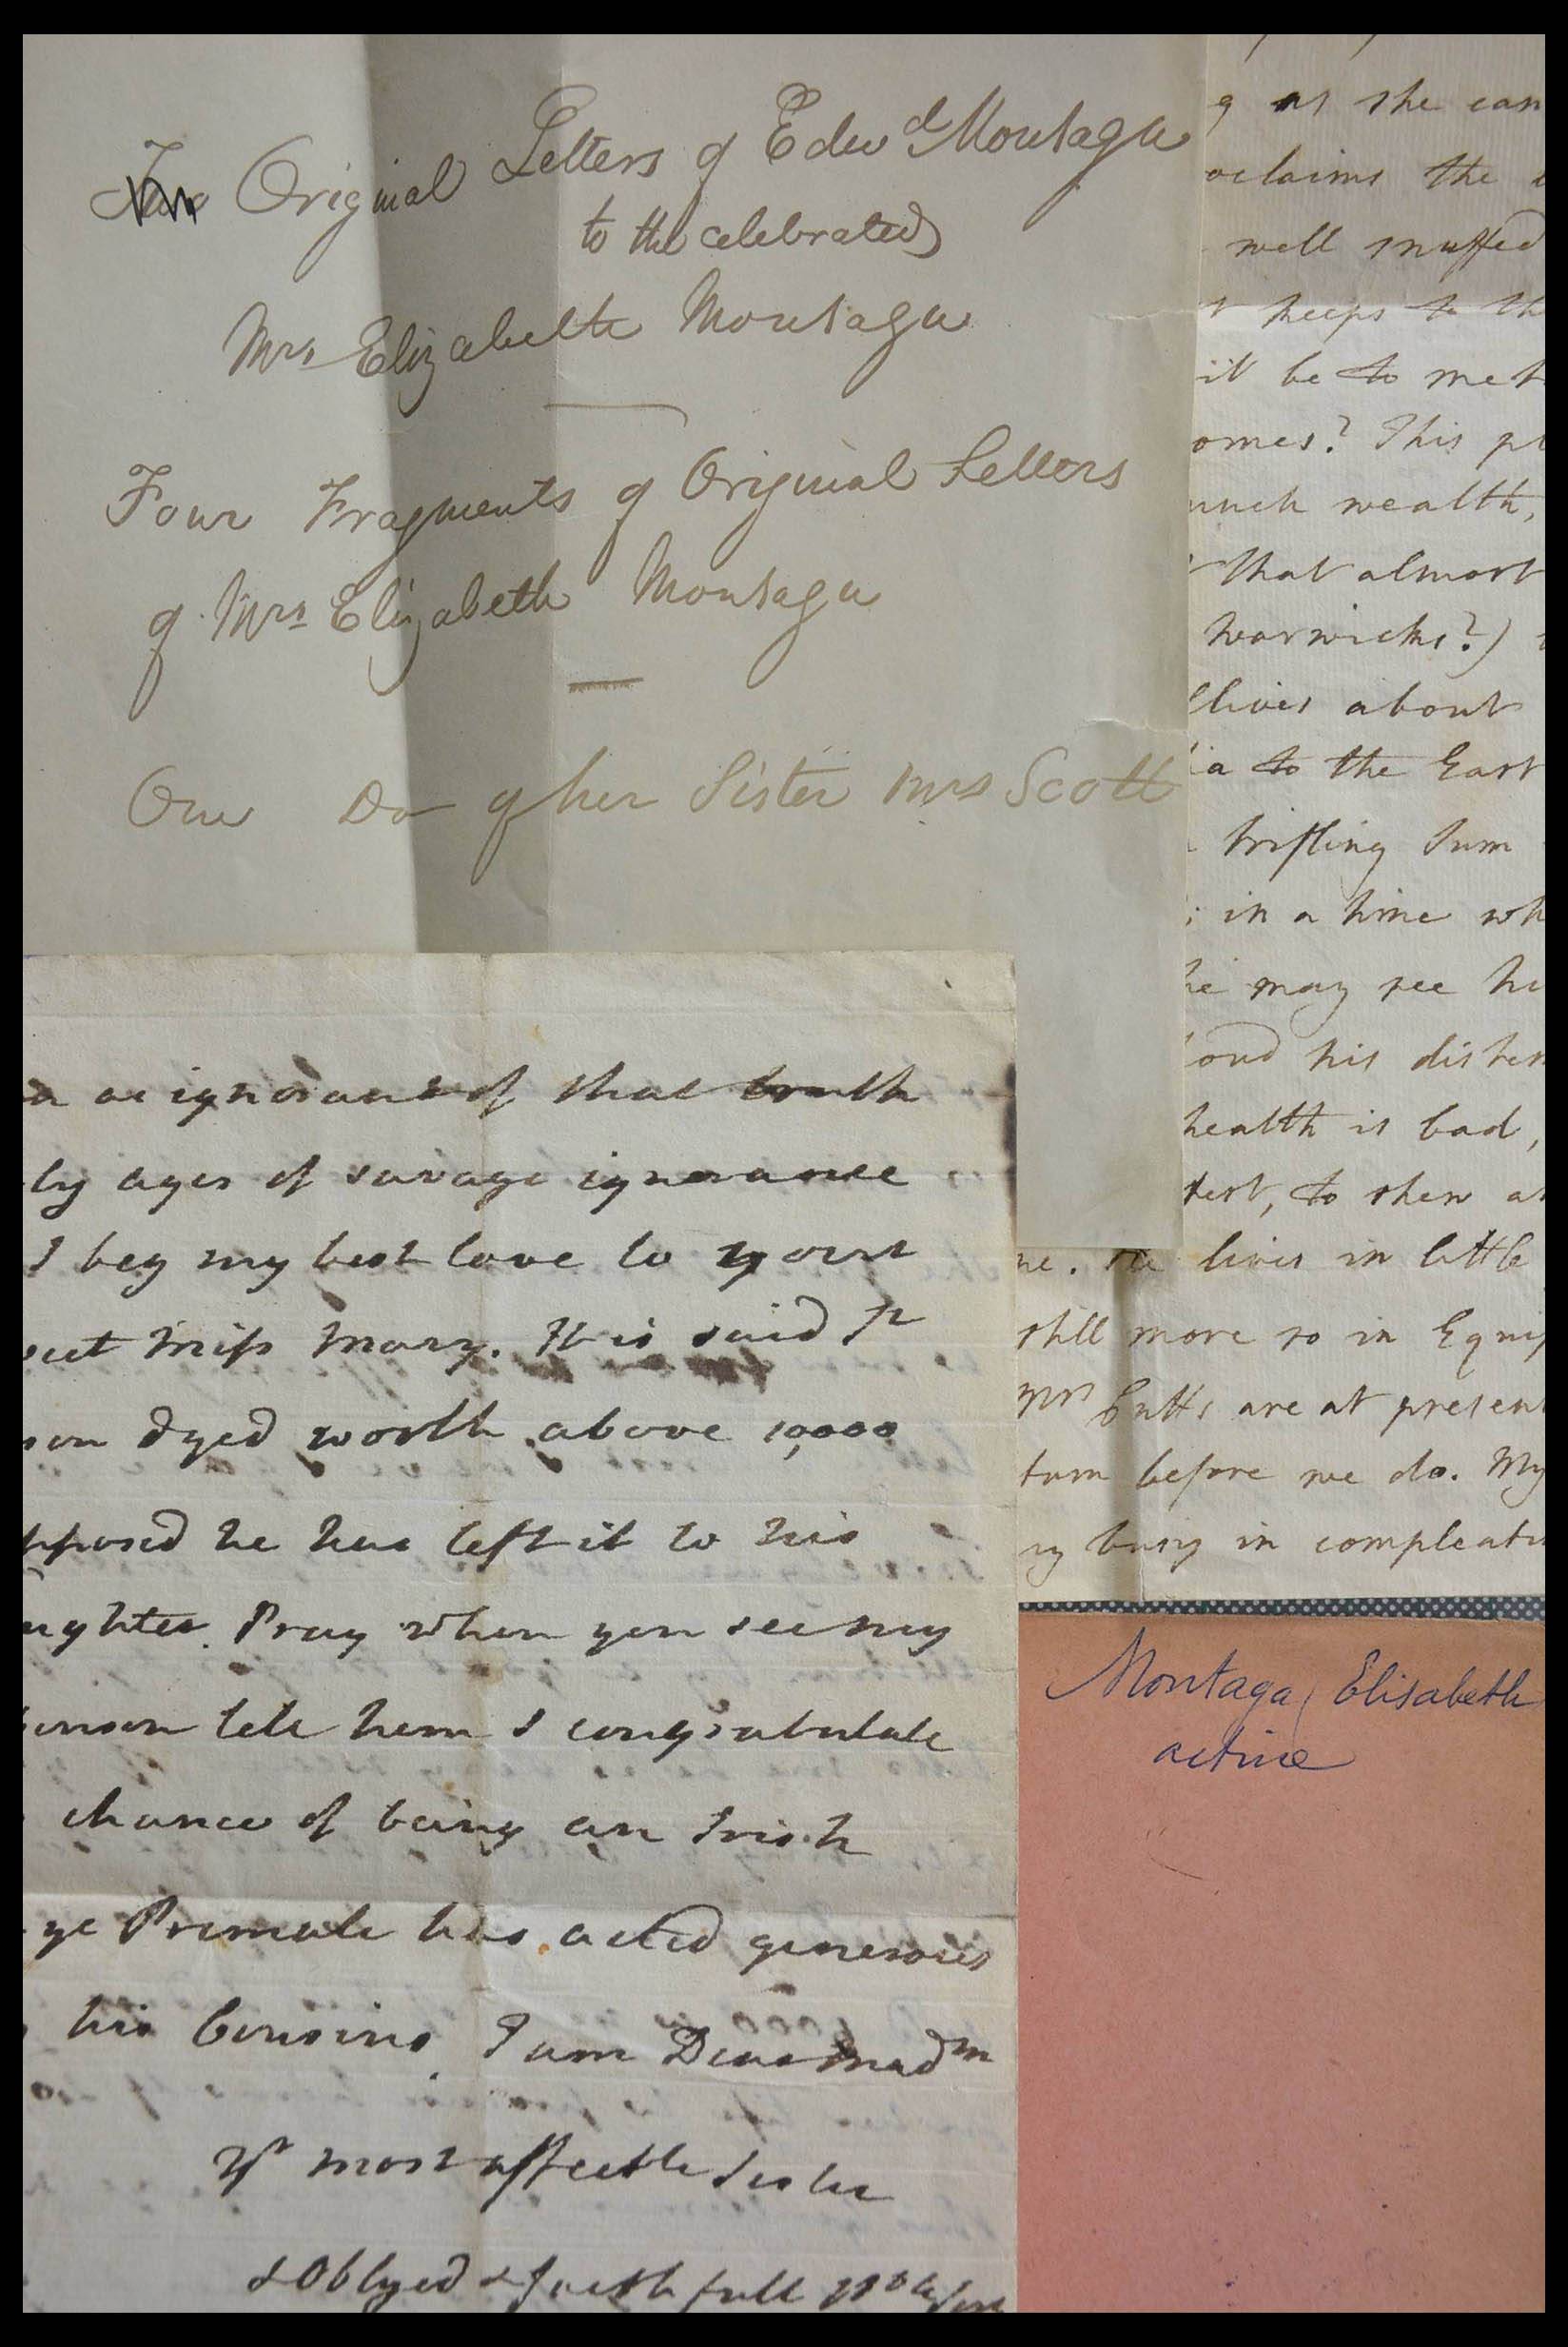 Original Letters of Edwd Montagu
to the celebrated
Mrs Elizabeth Montagu
Four Fragments of Original Letters
of Mrs Elizabeth Montagu
One Do of her Sister Mrs Scott
as she can
the
well snuffed
keeps to th
it be to met
omes? This pl
uch wealth,
that almost
warwicks?)
lives about
ia to the East
trifling Sum
in a time wh
he may see hi
his distr
health is bad,
test, to shew at
ne. He lives in little
still more so in Equip
Mrs Cutts are at present
turn before we do. My
ng busy in compleatin
a as ignorant of that truth
by ages of savage ignorance
I beg my best love to your
eet Miss Mary. It is said Sr
son dyed worth above 10,000
pposed he has left it to his
ughter. Pray when you see my
inson tell hem I congratulate
chance of being an Irish
ye Primate has acted generous
his Cousins. I am Dear Madm
Yr most affectte Sister
& Oblyed & faithfull
Montagu, Elisabeth
actrice